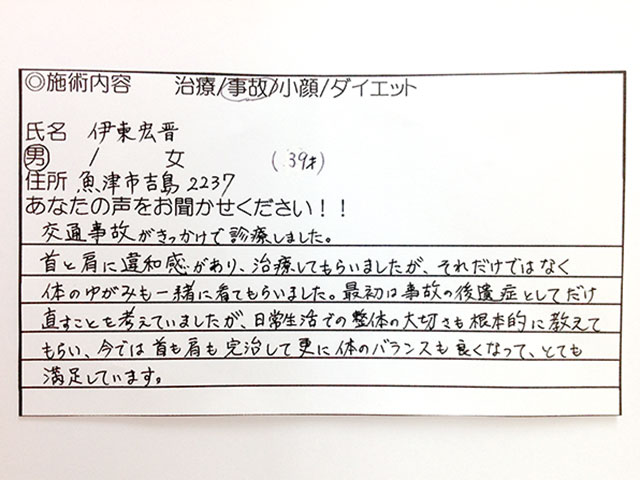 ◎施術内容 治療/事故/小顔/ダイエット
氏名 伊東宏晋
男 / 女 (39才)
住所 魚津市吉島2237
あなたの声をお聞かせください！！
交通事故がきっかけで診療しました。
首と肩に違和感があり、治療してもらいましたが、それだけではなく
体のゆがみも一緒に看てもらいました。最初は事故の後遺症としてだけ
直すことを考えていましたが、日常生活での整体の大切さも根本的に教えて
もらい、今では首も肩も完治して更に体のバランスも良くなって、とても
満足しています。